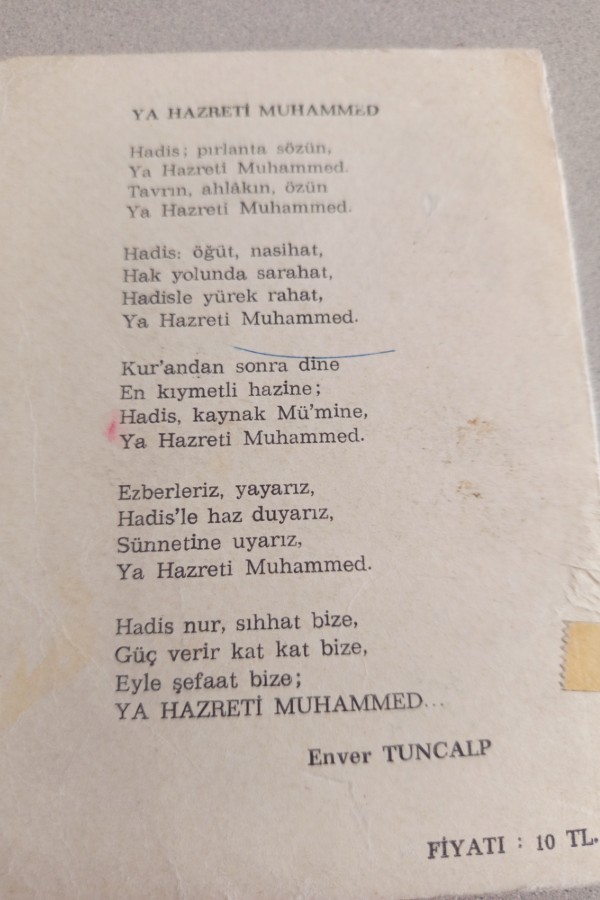 YA HAZRETİ MUHAMMED
Hadis; pırlanta sözün,
Ya Hazreti Muhammed.
Tavrın, ahlâkın, özün
Ya Hazreti Muhammed.
Hadis: öğüt, nasihat,
Hak yolunda sarahat,
Hadisle yürek rahat,
Ya Hazreti Muhammed.
Kur'andan sonra dine
En kıymetli hazine;
Hadis, kaynak Mü'mine,
Ya Hazreti Muhammed.
Ezberleriz, yayarız,
Hadis'le haz duyarız,
Sünnetine uyarız,
Ya Hazreti Muhammed.
Hadis nur, sıhhat bize,
Güç verir kat kat bize,
Eyle şefaat bize;
YA HAZRETİ MUHAMMED...
Enver TUNCALP
FİYATI : 10 TL.